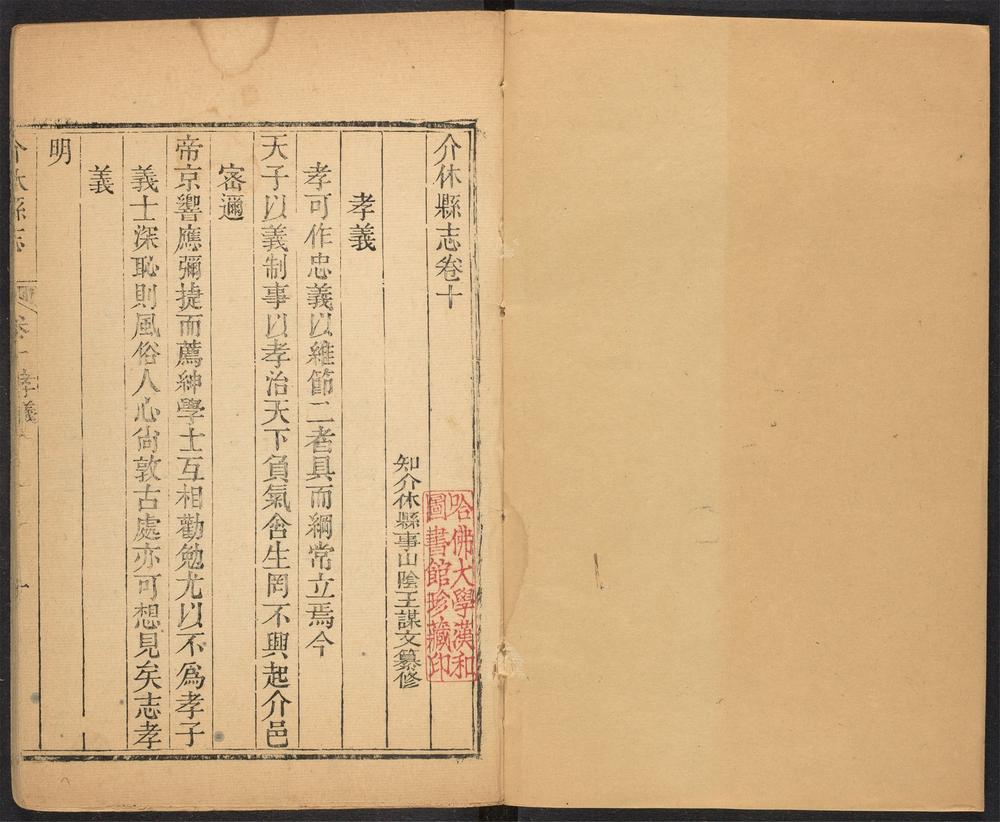 介休縣志卷十
知介休縣事山陰王謀文纂修
孝義
孝可作忠義以維節二者具而綱常立焉今
天子以義制事以孝治天下負氣含生罔不興起介邑
密邇
帝京響應彌捷而薦紳學士互相勸勉尤以不爲孝子
義士深恥則風俗人心尙敦古處亦可想見矣志孝
義
明
介休縣志 卷十 孝義 一
哈佛大學漢和
圖書館珍藏印